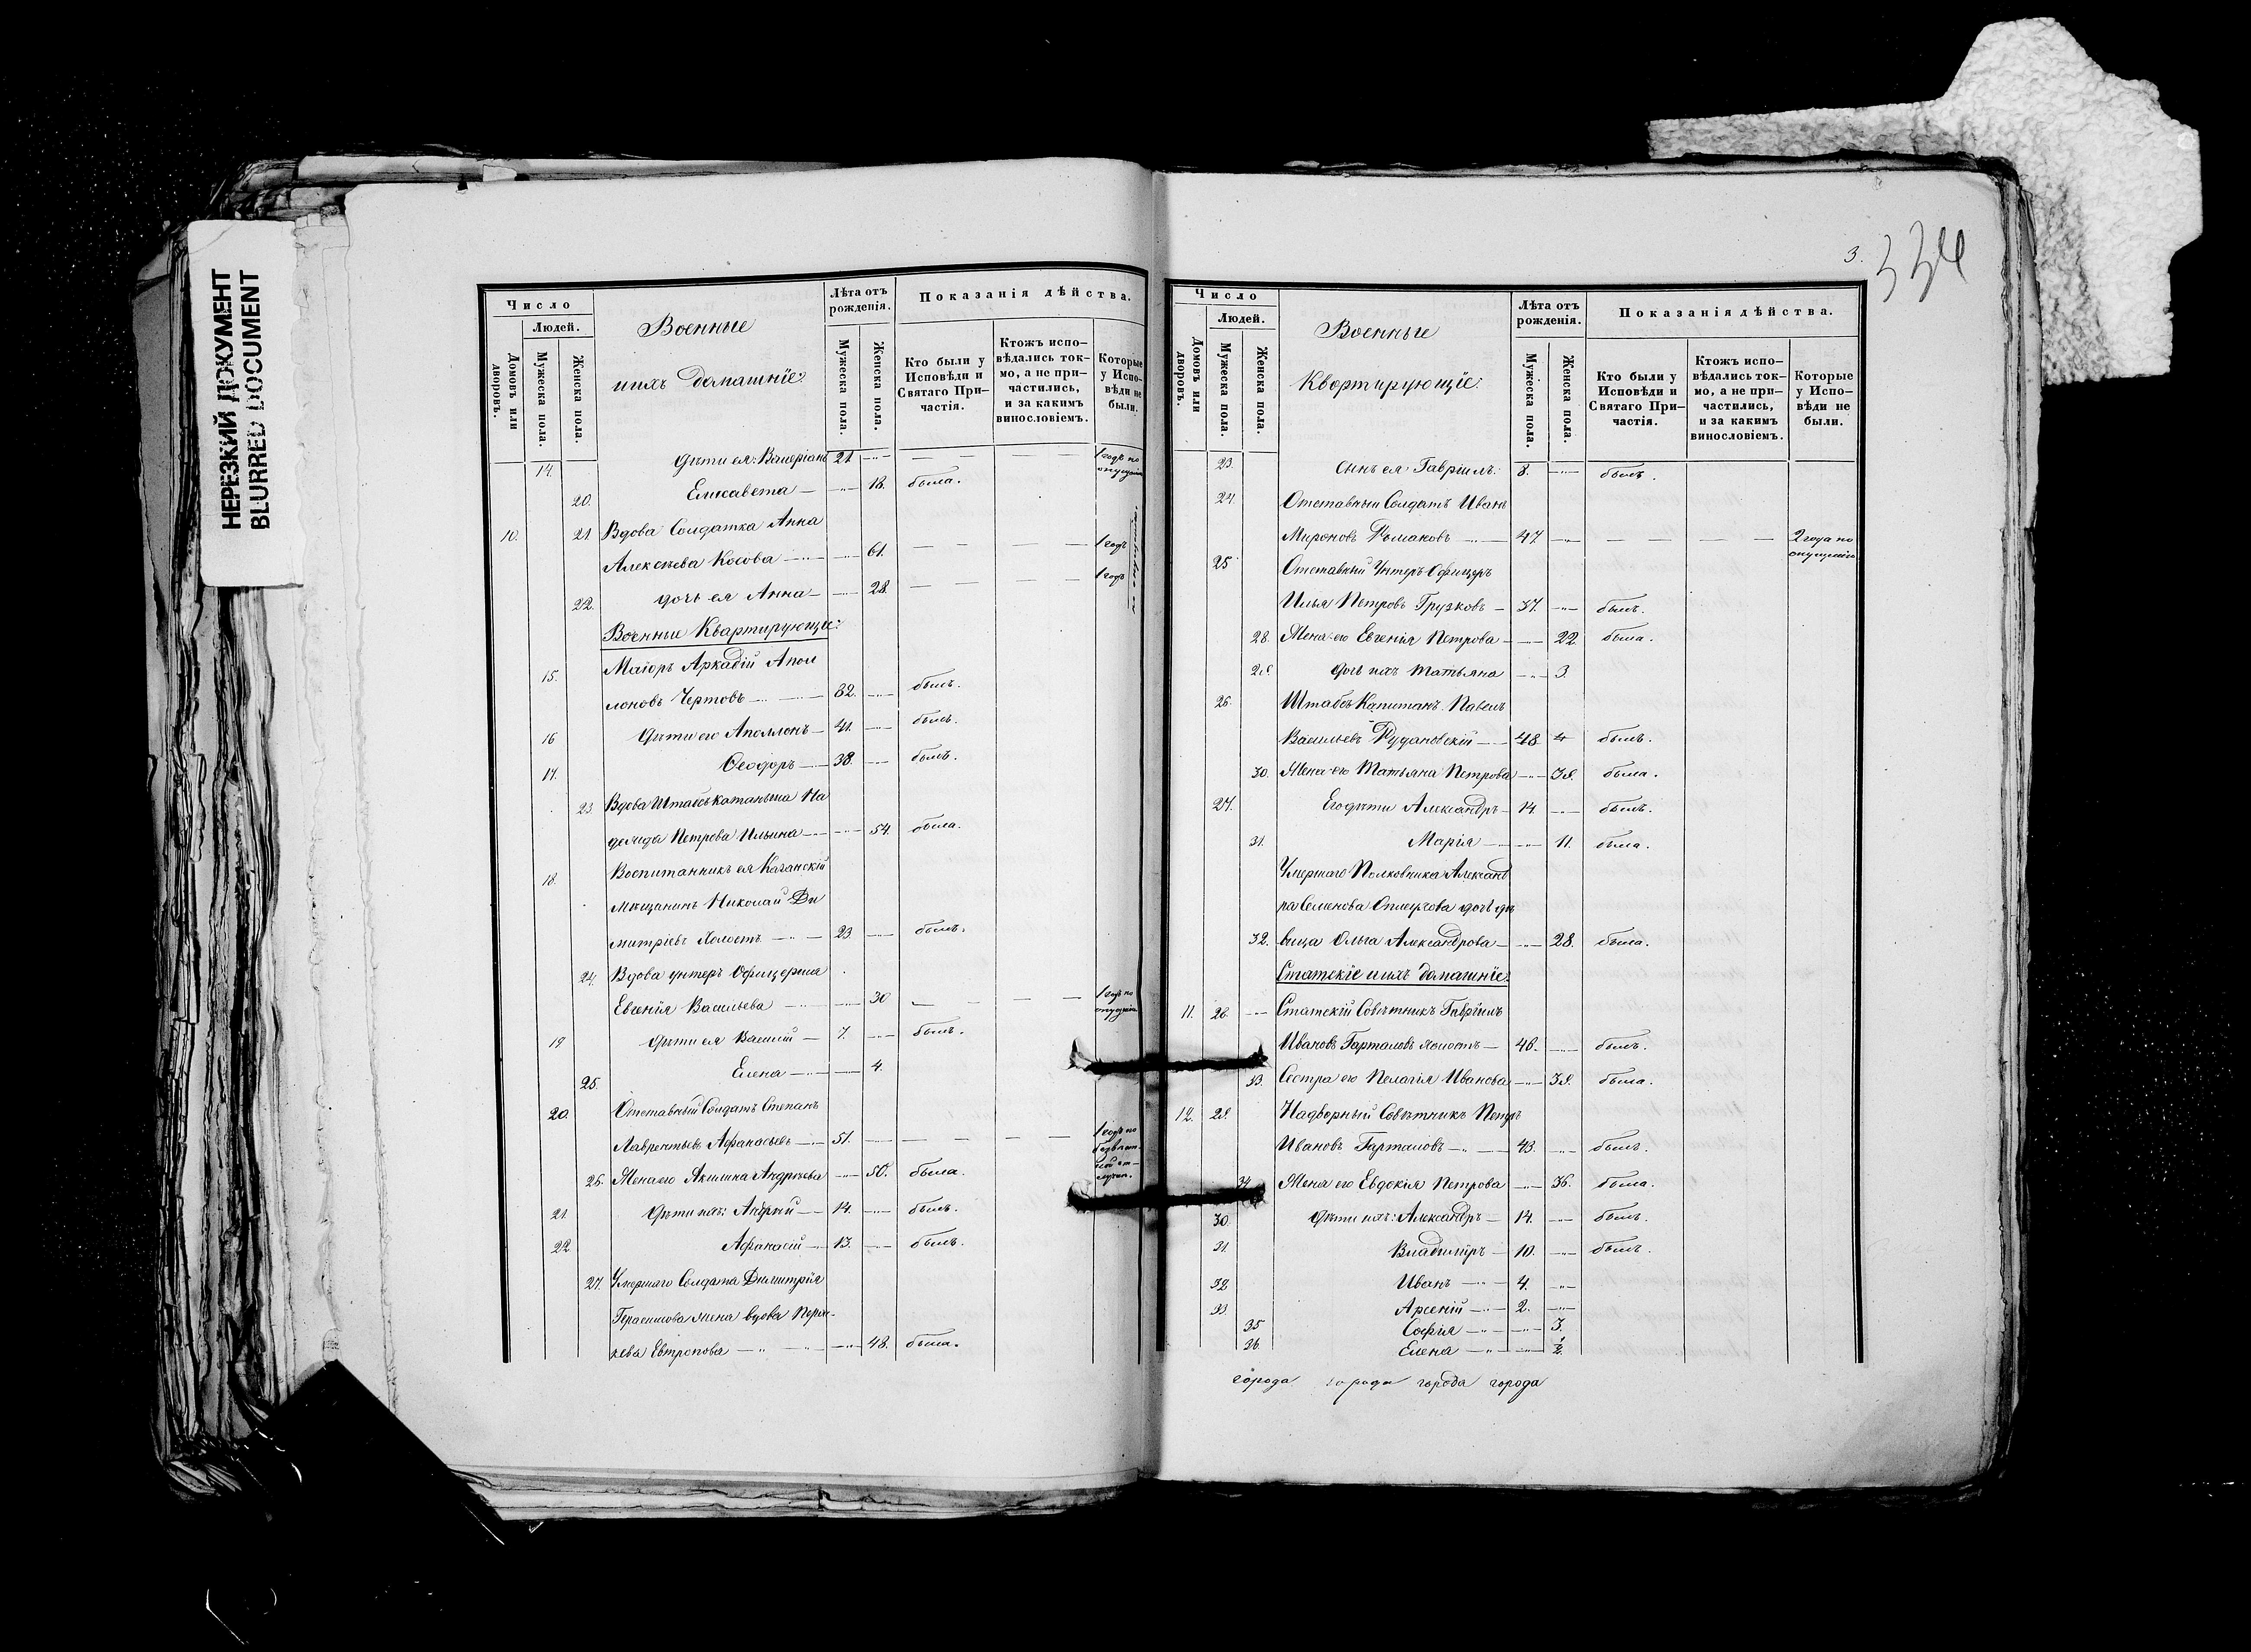 НЕРЕЗКИЙ ДОКУМЕНТ
BLURRED DOCUMENT
Число
Людей.
Домовъ или дворовъ.
Мужеска пола.
Женска пола.
Военные
ихъ домашніе:
Лѣта отъ рожденія.
Мужеска пола.
Женска пола.
Показанія дѣйства.
Кто были у Исповѣди и Святаго Причастія.
Ктожъ исповѣдались токмо, а не причастились, и за какимъ винословіемъ.
Которые у Исповѣди не были.
14. дѣти ея: Валеріанъ 21 1 годъ по опущенію
20. Елисавета 18. была.
10. 21 Вдова Солдатка Анна
Алексѣева Косова 61. 1 годъ
22. дочь ея Анна 28. 1 годъ
Военные Квартирующіе:
15. Маіоръ Аркадій Апол
лоновъ Чертовъ 82. былъ.
16 дѣти его Аполлонъ 41. былъ.
17. Ѳеодоръ 38. былъ.
23. Вдова Штабсъкапитанша На
дежда Петрова Ильина 54. была.
18. Воспитанникъ ея Казанскій
мѣщанинъ Николай Ди
митріевъ Холостъ 23. былъ.
24. Вдова унтеръ Офицерша
Евгенія Васильева 30 1 годъ по опущенію
19 дѣти ея Василій 7. былъ.
25. Елена 4.
20. Отставный Солдатъ Степанъ
Лаврентьевъ Афанасьевъ 51. 1 годъ по
26. Жена его Акилина Андреева 50. была.
21. дѣти ихъ: Андрей 14. былъ.
22. Афанасій 13. былъ.
27. Умершаго Солдата Димитрія
Герасимова жена вдова
Евтропова 48. была.
3.
334
Число
Людей.
Домовъ или дворовъ.
Мужеска пола.
Женска пола.
Военные
Квартирующіе:
Лѣта отъ рожденія.
Мужеска пола.
Женска пола.
Показанія дѣйства.
Кто были у Исповѣди и Святаго Причастія.
Ктожъ исповѣдались токмо, а не причастились, и за какимъ винословіемъ.
Которые у Исповѣди не были.
23. сынъ ея Гавріилъ. 8. былъ.
24. Отставный Солдатъ Иванъ
Мироновъ Романовъ 47. 2 года по опущенію
25 Отставный Унтеръ Офицеръ
Илья Петровъ Грузковъ 37. былъ.
28. Жена его Евгенія Петрова 22. была.
29. дочь ихъ Татьяна 3.
26. Штабсъ Капитанъ Павелъ
Васильевъ Рудановскій 48 былъ.
30. Жена его Татьяна Петрова 39. была.
27. Его дѣти Александръ 14. былъ.
31. Марія 11. была.
Умершаго Полковника Александ
ра Семенова дочь дѣ
32. вица Ольга Александрова 28. была.
Статскіе ихъ домашніе:
11. 28. Статскій Совѣтникъ Гавріилъ
Ивановъ Гарталовъ холостъ 46. былъ.
33. Сестра его Пелагія Иванова 39. была.
12. 29. Надворный Совѣтникъ Петръ
Ивановъ Гарталовъ 43. былъ.
34 Жена его Евдокія Петрова 36. была.
30. дѣти ихъ: Александръ 14. былъ.
31. Владиміръ 10. былъ.
32 Иванъ 4.
33. Арсеній 2.
35 Софія 3.
36. Елена ½.
города города города города